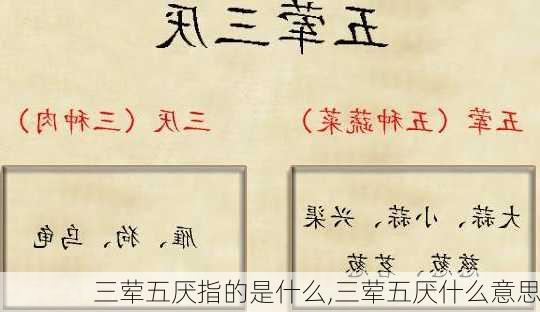 五荤三厌
五荤（五种蔬菜）
三厌（三种肉）
大蒜、小蒜、兴渠
慈葱、茗葱
雁、狗、乌龟
三荤五厌指的是什么,三荤五厌什么意思